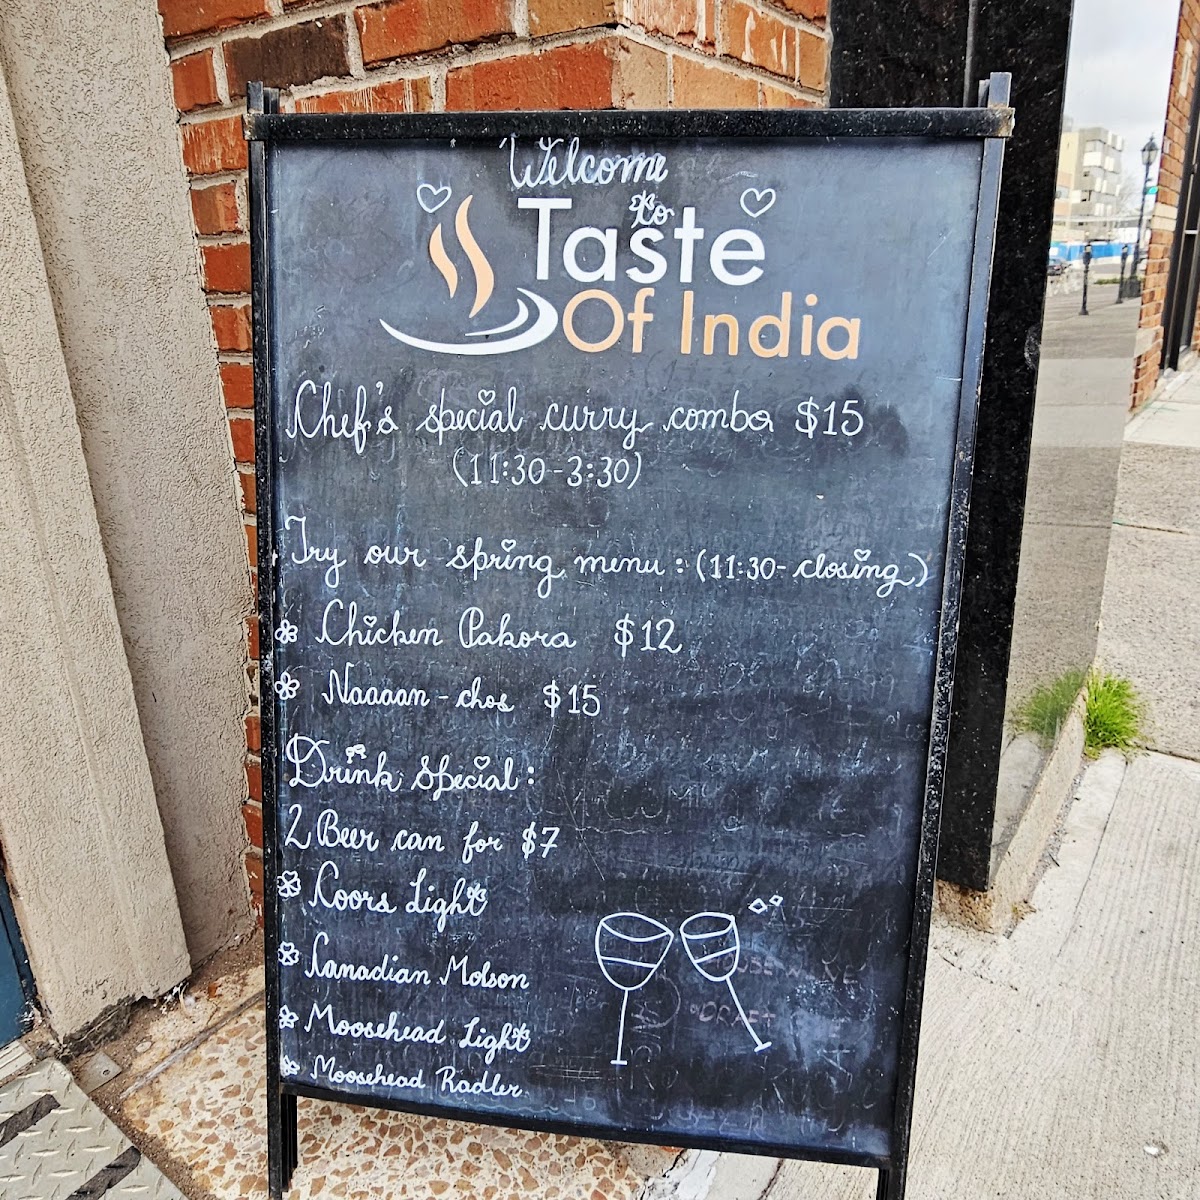 Welcome
to
Taste
Of India
Chef's special curry combo $15
(11:30-3:30)
Try our spring menu: (11:30-closing)
Chicken Pakora $12
Naaaan-chos $15
Drink Special:
2 Beer can for $7
Coors Light
Canadian Molson
Moosehead Light
Moosehead Radler